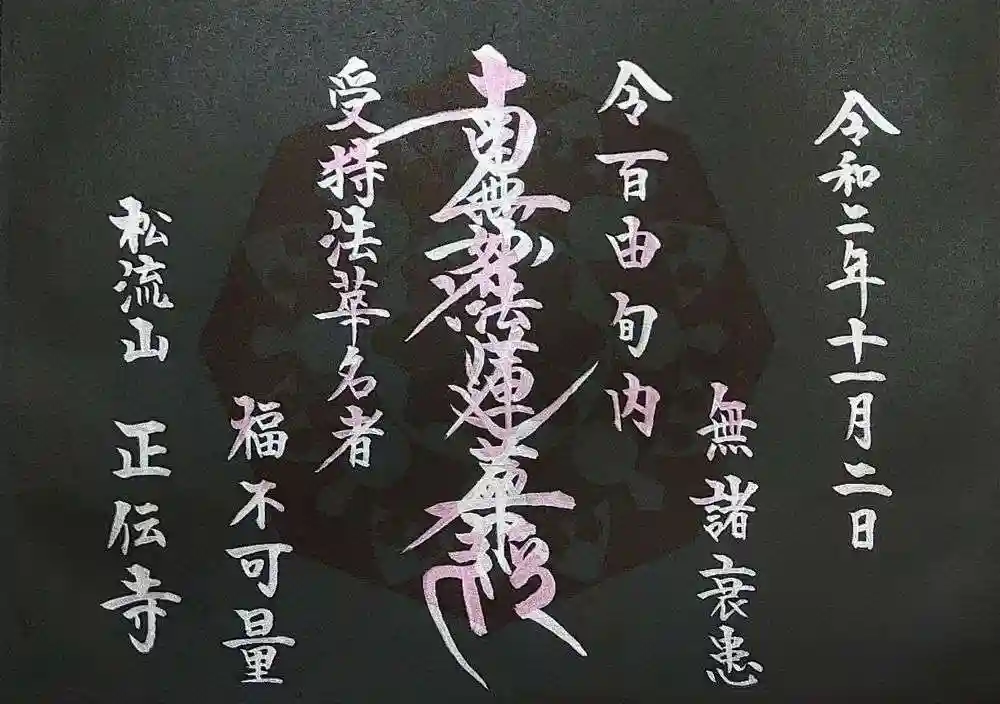 令和二年十一月二日
令百由旬内
無諸衰患
南無妙法蓮華経
受持法華名者
福不可量
松流山 正伝寺